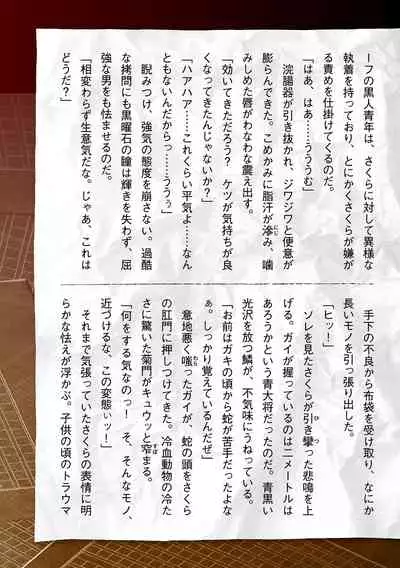 ーフの黒人青年は、さくらに対して異様な
執着を持っており、とにかくさくらが嫌が
る責めを仕掛けてくるのだ。
「はあ、はあ……ううむ」
浣腸器が引き抜かれ、ジワジワと便意が
膨らんできた。こめかみに脂汗が滲み、噛
みしめた唇がわなわな震え出す。
「効いてきただろう？　ケツが気持ちが良
くなってきたんじゃないか？」
「ハアハア……これくらい平気よ……なん
ともないんだからっ……ううぅ」
睨みつけ、強気の態度を崩さない。過酷
な拷問にも黒曜石の瞳は輝きを失わず、屈
強な男をも怯ませるのだ。
「相変わらず生意気だな。じゃあ、これは
どうだ？」
手下の不良から布袋を受け取り、なにか
長いモノを引っ張り出した。
「ヒッ！」
ソレを見たさくらが引き攣った悲鳴を上
げる。ガイが握っているのは二メートルは
あろうかという青大将だったのだ。青黒い
光沢を放つ鱗が、不気味にうねっている。
「お前はガキの頃から蛇が苦手だったよな
ぁ。しっかり覚えているんだぜ」
意地悪く嗤ったガイが、蛇の頭をさくら
の肛門に押しつけてきた。冷血動物の冷た
さに驚いた菊門がキュウッと窄まる。
「何をする気なのっ！　そ、そんなモノ、
近づけるな、この変態ぃッ！」
それまで気張っていたさくらの表情に明
らかな怯えが浮かぶ。子供の頃のトラウマ